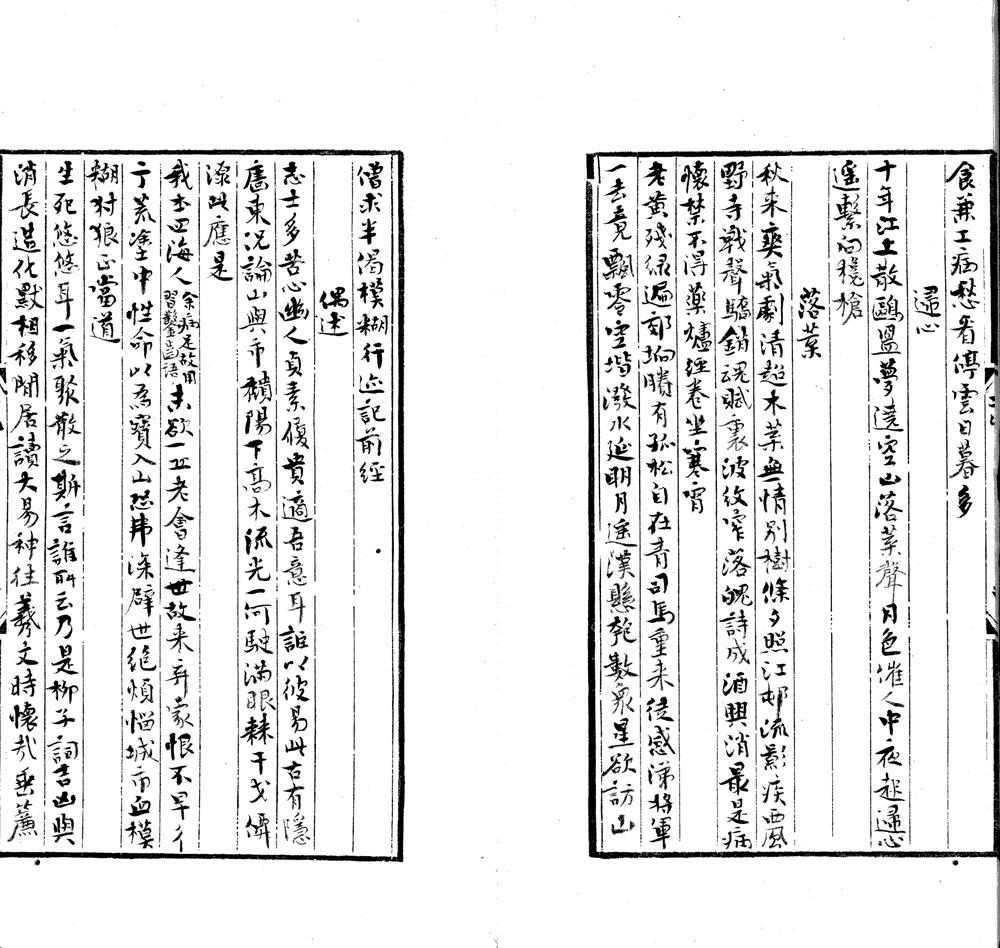 食兼工病愁看停雲日暮多
歸心
十年江上散鷗盟夢遶空山落葉聲月色催人中夜起歸心
遥繫向欃槍
落葉
秋来爽氣劇清超木葉無情別樹條夕照江邨流影疾西風
野寺戰聲驕銷魂賦裏波紋窄落魄詩成酒興消最是病
懷禁不得藥爐經卷坐寒宵
老黄殘緑遍郊坰賸有孤松自在青司馬重来徒感涕將軍
一去竟飄零空堦潑水延明月遥漢懸乾數衆星欲訪山
僧求半偈模糊行迹記前經
偶述
志士多苦心幽人貞素履貴適吾意耳詎以彼易此古有隱
廛東况論山與市頽陽下高木流光一何駛滿眼棘干戈儔
深此應是
我本四海人余病足故用習鑿齒語未欲一丘老會逢世故来弃家恨不早彳
亍荒塗中性命以爲寶入山恐弗深辟世絶煩惱城市血模
糊豺狼正當道
生死悠悠耳一氣聚散之斯言誰所云乃是柳子詞吉凶與
消長造化默相移閒居讀大易神往羲文時懷哉垂簾